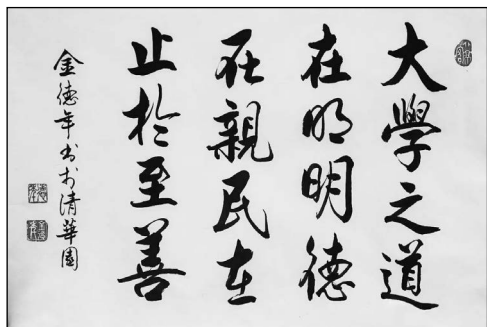 大學之道
在明明德
在親民在
止於至善
金德年书於清華園